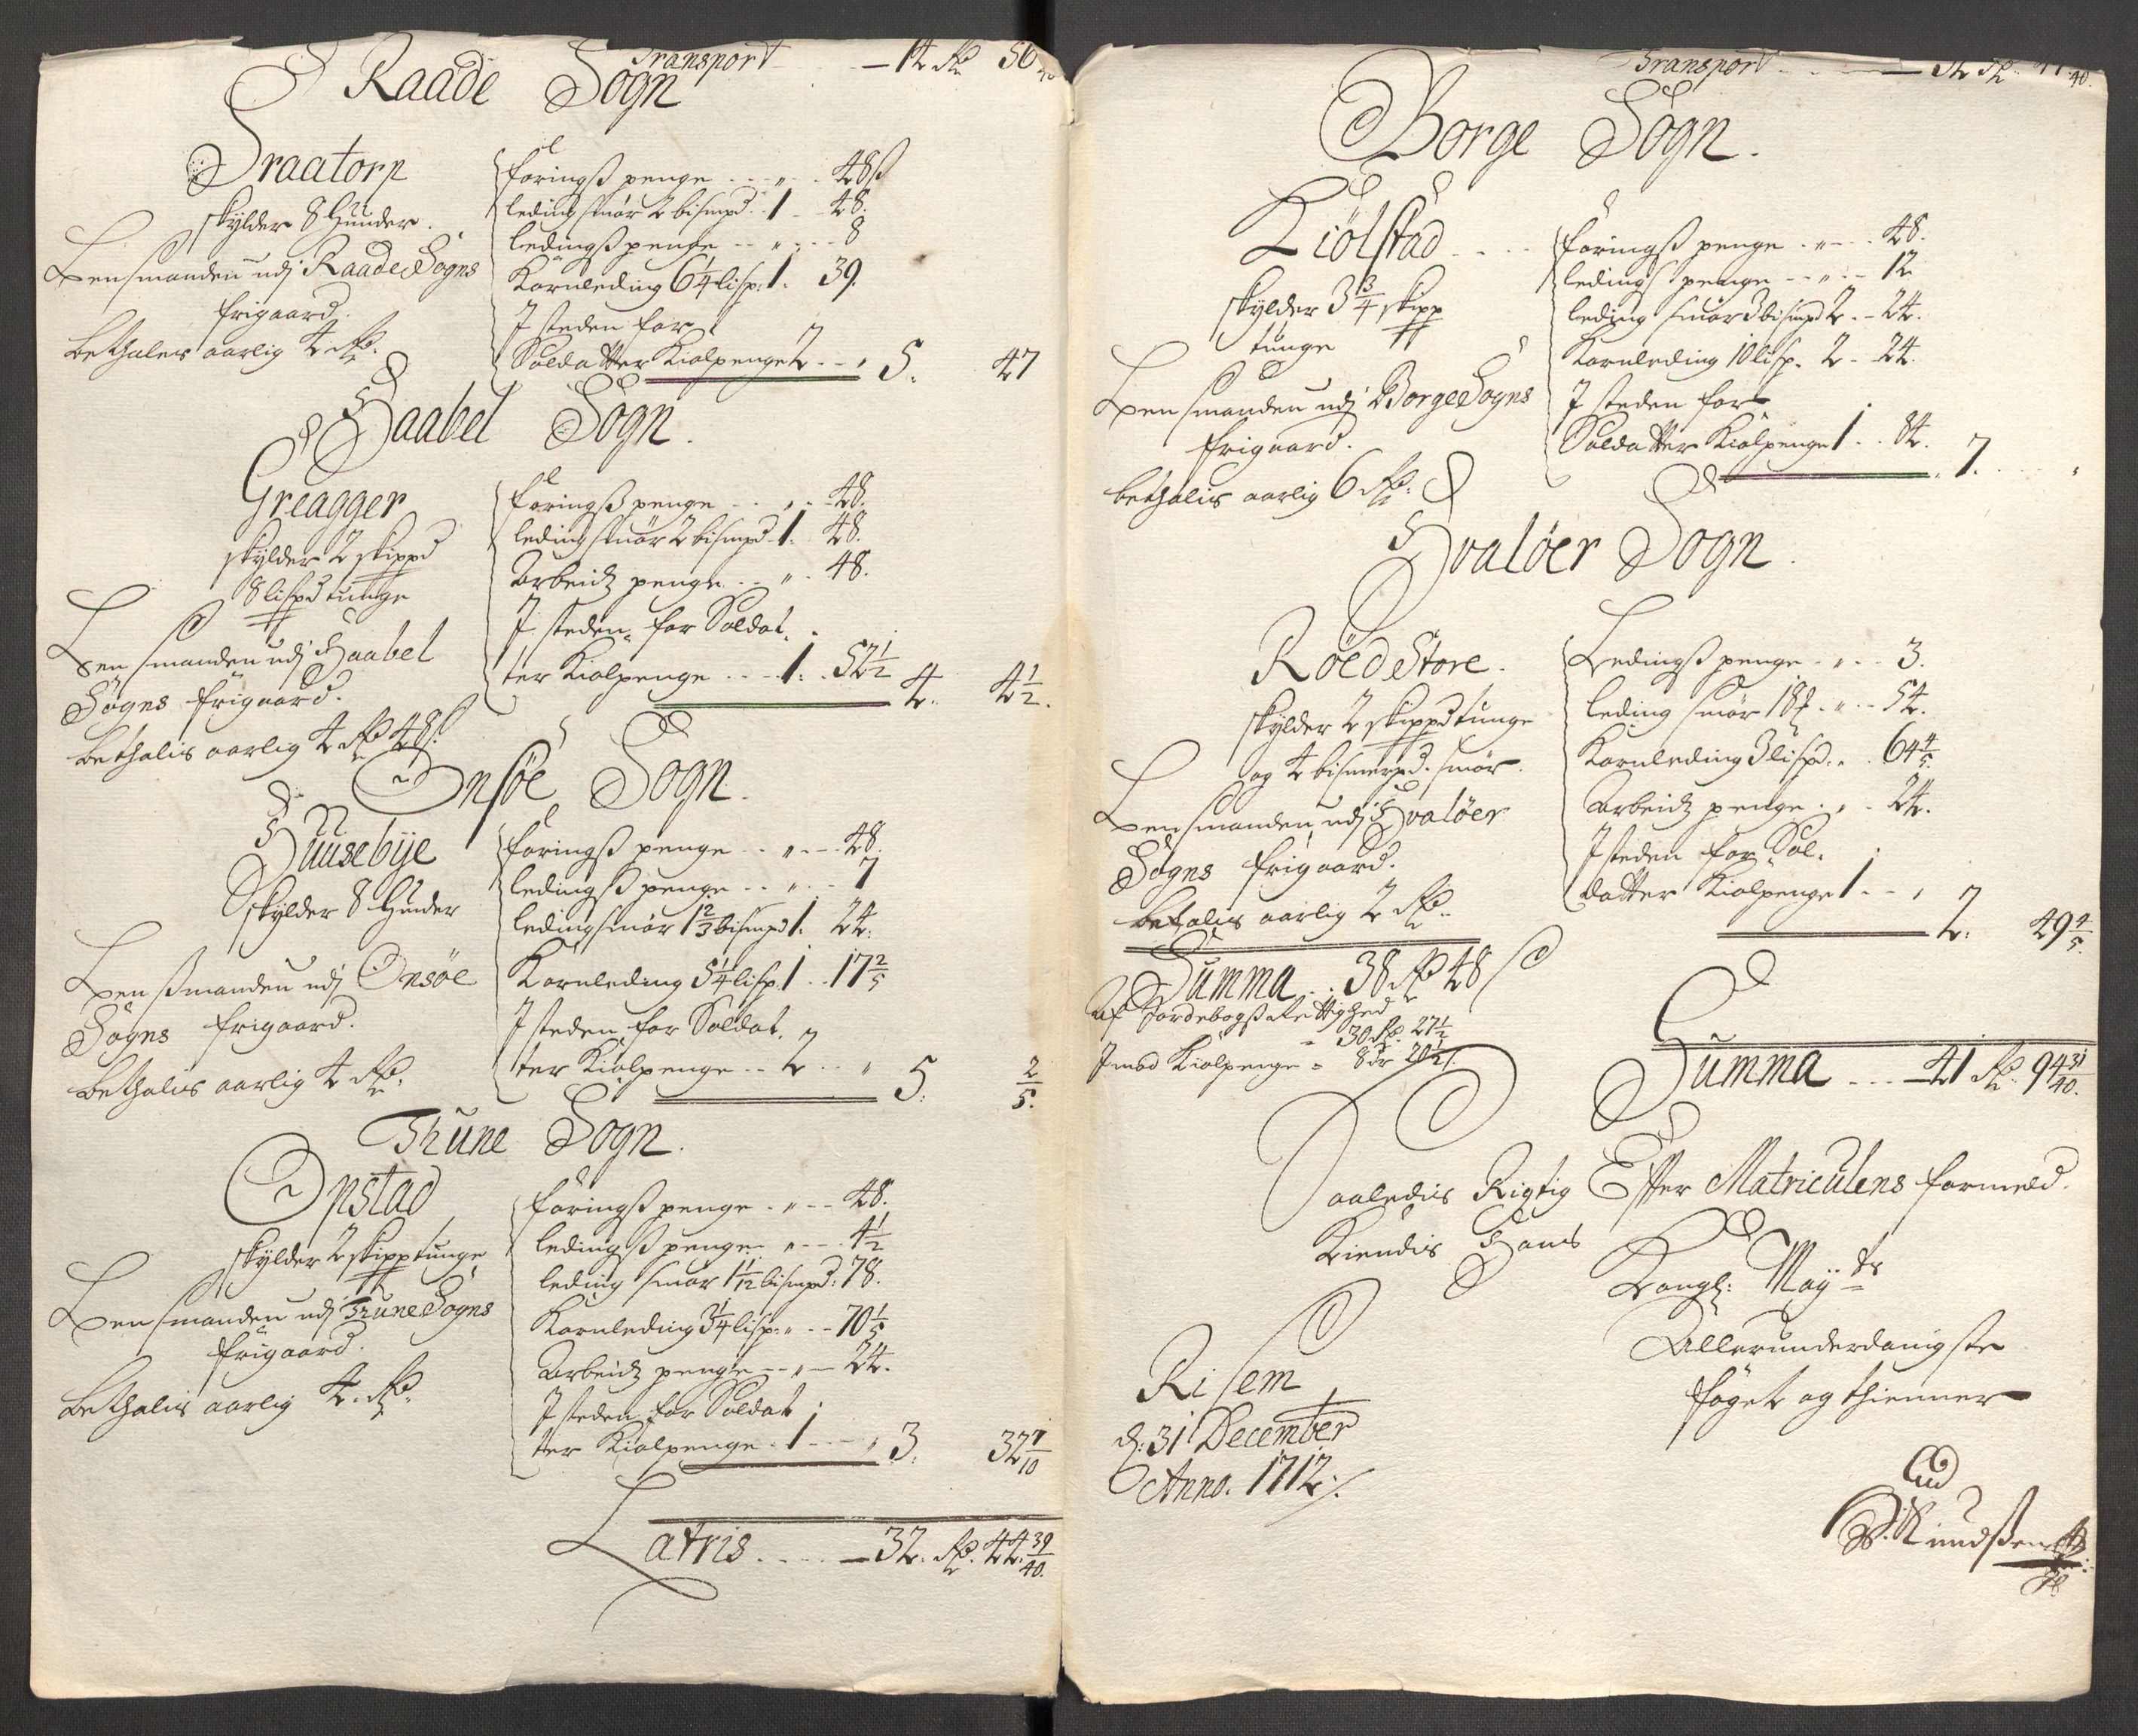 Transport - - - 14 Rd 56
Raade Sogn
Draatorp
skylder 8 Hunder.
Lensmanden udj Raade Sogns
frigaard.
bethales aarlig 4 Rd.
foringß penge - - „ - - 48 ß
leding smør 2 bismpd. 1 - 48.
ledingß penge - - „ - - 8
Kornleding 6 1/4 lisp: 1. 39.
J steden for
Soldatter Kiolpenge 2 - - „ 5. 47
Haabel Sogn.
Greagger
skylder 2 skippd
8 lispd tunge
Lensmanden udj Haabel
Sogns frigaard.
bethalis aarlig 4 Rd 48 ß
foringß penge - - „ - 48.
leding smør 2 bismpd 1. 48.
Arbeidz penge - - „ - 48.
J steden for Soldat
ter Kiolpenge - - - 1. - 52 1/2 4. 4 1/2.
Onsöe Sogn.
Huusebÿe
Skylder 8 Hunder
Lenßmanden udj Onsöe
Sogns frigaard.
bethalis aarlig 4 Rd.
foringß penge - - „ - - 48.
ledingß penge - - „ - - 7
leding smør 1 2/3 bismpd 1. 24.
Kornleding 5 1/4 lisp. 1 - 17 2/5
J steden for Soldat
ter Kiolpenge - - 2 - - „ 5. 2/5.
Thune Sogn.
Opstad
skylder 2 skipp tunge
Lensmanden udj Thune Sogns
frigaard.
bethalis aarlig 4. Rd.
foringß penge - „ - - 48.
ledingß penge - „ - - 4 1/2
leding smør 1 1/12 bismpd: 78.
Kornleding 3 1/4 lisp: „ - - 70 1/5
Arbeidz penge - - „ - 24.
J steden for Soldat
ter Kiolpenge - 1 - - „ 3. 32 7/10
Latris - - - - 32. Rd. 44 39/40.
Transport - - - - 32 Rd 40.
Borge Sogn.
Kiölstad - - -
skylder 3 3/4 skipp
tunge
Lensmanden udj Borge Sogns
frigaard.
bethalis aarlig 6 Rd.
foringß penge - „ - - 48.
ledingß penge - - „ - - 12
leding smør 3 bismpd 2 - - 24.
Kornleding 10 lisp. 2 - 24.
J steden for
Soldatter Kiolpenge 1 - - 84. 7. - - „
Hvalöer Sogn.
Röed Store.
skylder 2 skippd tunge
og 4 bismerpd. smør.
Lensmanden udj Hvalöer
Sogns frigaard.
betalis aarlig 2 Rd.
Ledingß penge - „ - - 3.
leding smør 18 - „ - - 54.
Kornleding 3 lispd. „ - 64 4/5.
Arbeidz penge - „ - 24.
J steden for Sol-
datter Kiolpenge 1 - - „ 2. 49 4/5.
Summa - - 38 Rd 48 ß
Af Jordebogß Rettighed
- 30 Rd. 27 1/2
Jmod Kiolpenge - 8 dr 20 1/2 ß.
Summa - - - 41 Rd. 94 31/40.
Saaledis Rigtig Efter Matriculens formeld.
Kiendis Hans
Kongl: Maÿ ts
Allerunderdanigste
foget og thienner
Risem
d: 31 December
Anno. 1712 ./.